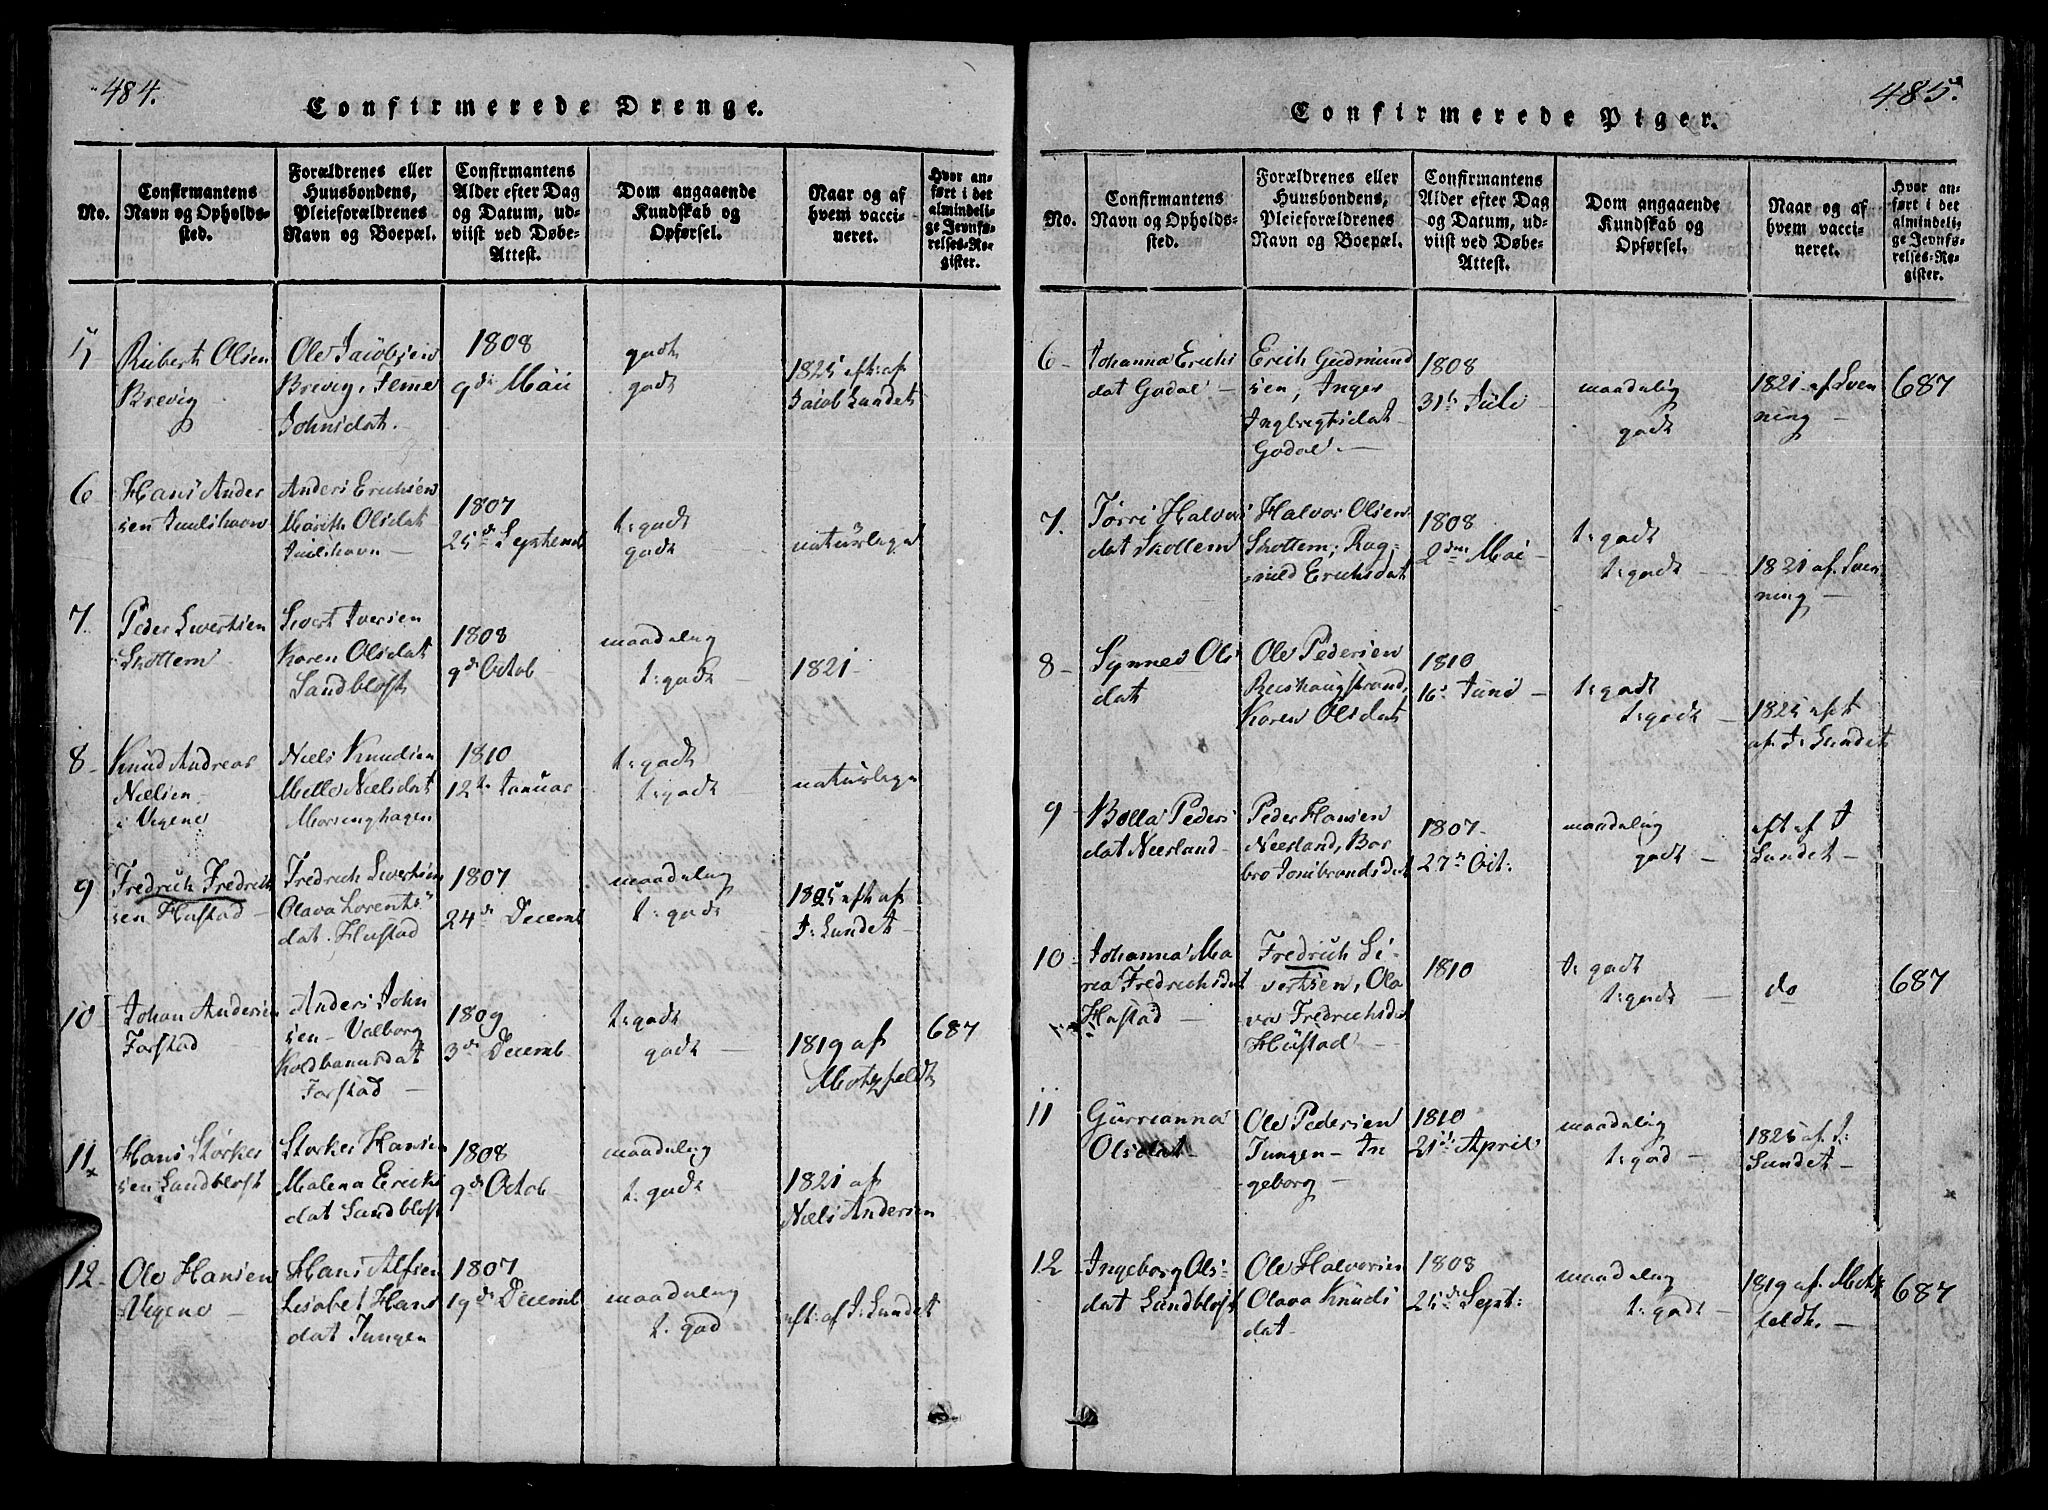 484.
Confirmerede Drenge.
No.
Confirmantens
Navn og Opholds-
sted.
Forældrenes eller
Huusbondens,
Pleieforældrenes
Navn og Boepæl.
Confirmantens
Alder efter Dag
og Datum, ud-
viist ved Døbe-
Attest.
Dom angaaende
Kundskab og
Opførsel.
Naar og af
hvem vacci-
neret.
Hvor an-
ført i det
almindeli-
ge Jevnfø-
relses-Re-
gister.
5
Rubert Olsen
Brevig
Ole Jacobsen
Brevig,
Johnsdat.
1808
9de Maii
godt
godt
1825 eft: af
Jacob Sundet
6
Hans Ander
sen Juulshavn
Anders Erichsen
Marith Olsdat
Juulshavn
1807
25de Septemb
t: godt
godt
naturlige
7
Peder Sivertsen
Skottem
Sivert Iversen
Karen Olsdat
Sandbloft
1808
9de Octob
maadelig
t: godt
1821
8
Knud Andreas
Nielsen
Vegene
Niels Knudsen
Melle Nielsdat
1810
12te Januar
t: godt
t: godt
naturlige
9
Fredrich Fredrich
sen Hustad
Fredrich Sivertsen
Olava Lorents
dat. Hustad
1807
24de Decemb
maadelig
t: godt
1825 eft af
J: Sundet
10
Johan Andersen
Farstad
Anders John
sen - Valborg
Kolbansdat
Farstad
1809
3de Decemb
t: godt
godt
1819 af
Motzfeldt
687
11
Hans Storker
sen Sandbloft
Storker Hansen
Malena Erichs
dat Sandbloft
1808
9de Octob
maadelig
t: godt
1821 af
Niels Andersen
12
Ole Hansen
Vegene
Hans Alfsen
Lisabet Hans
dat Jungen
1807
19de Decemb
maadelig
t: god
eft: af J: Sundet
485.
Confirmerede Piger.
No.
Confirmantens
Navn og Opholds-
sted.
Forældrenes eller
Huusbondens,
Pleieforældrenes
Navn og Boepæl.
Confirmantens
Alder efter Dag
og Datum, ud-
viist ved Døbe-
Attest.
Dom angaaende
Kundskab og
Opførsel.
Naar og af
hvem vacci-
neret.
Hvor an-
ført i det
almindeli-
ge Jevnfø-
relses-Re-
gister.
6
Johanna Erichs
dat Godal
Erich Gudmund
sen, Inger
Inglbrigtsdat
Godal.
1808
31te Juli
maadelig
godt
1821 af Sven
ning
687
7.
Torri Halvors
dat Skottem
Halvor Olsen
Skottem, Rag-
nild Erichsdat
1808
2den Mai
t: godt
t: godt
1821 af Sven
ning
8
Synnev Ols
dat
Ole Pedersen
Karen Olsdat
1810
16de Juni
t: godt
t: godt
1825 eft
af J: Sundet
9
Bolla Peders
dat Neerland
Peder Hansen
Neerland, Bar
bro Jonsbrandsdat
1807
27de Oct:
maadelig
godt
eft af J
Sundet
10
Johanna Ma
rea Fredrichsdat
Hustad
Fredrich Si-
vertsen, Ola
va Fredrichsdat
Hustad
1810
t: godt
t: godt
do
687
11
Gurrianna
Olsdat
Ole Pedersen
Jungen - In
geborg
1810
21de April
maadelig
t: god
1825 af J:
Sundet
12
Ingeborg Ols
dat Sandbloft
Ole Halvorsen
Olava Knuds
dat
1808
25de Sept:
maadelig
t: godt
1819 af Motz
feldt.
687